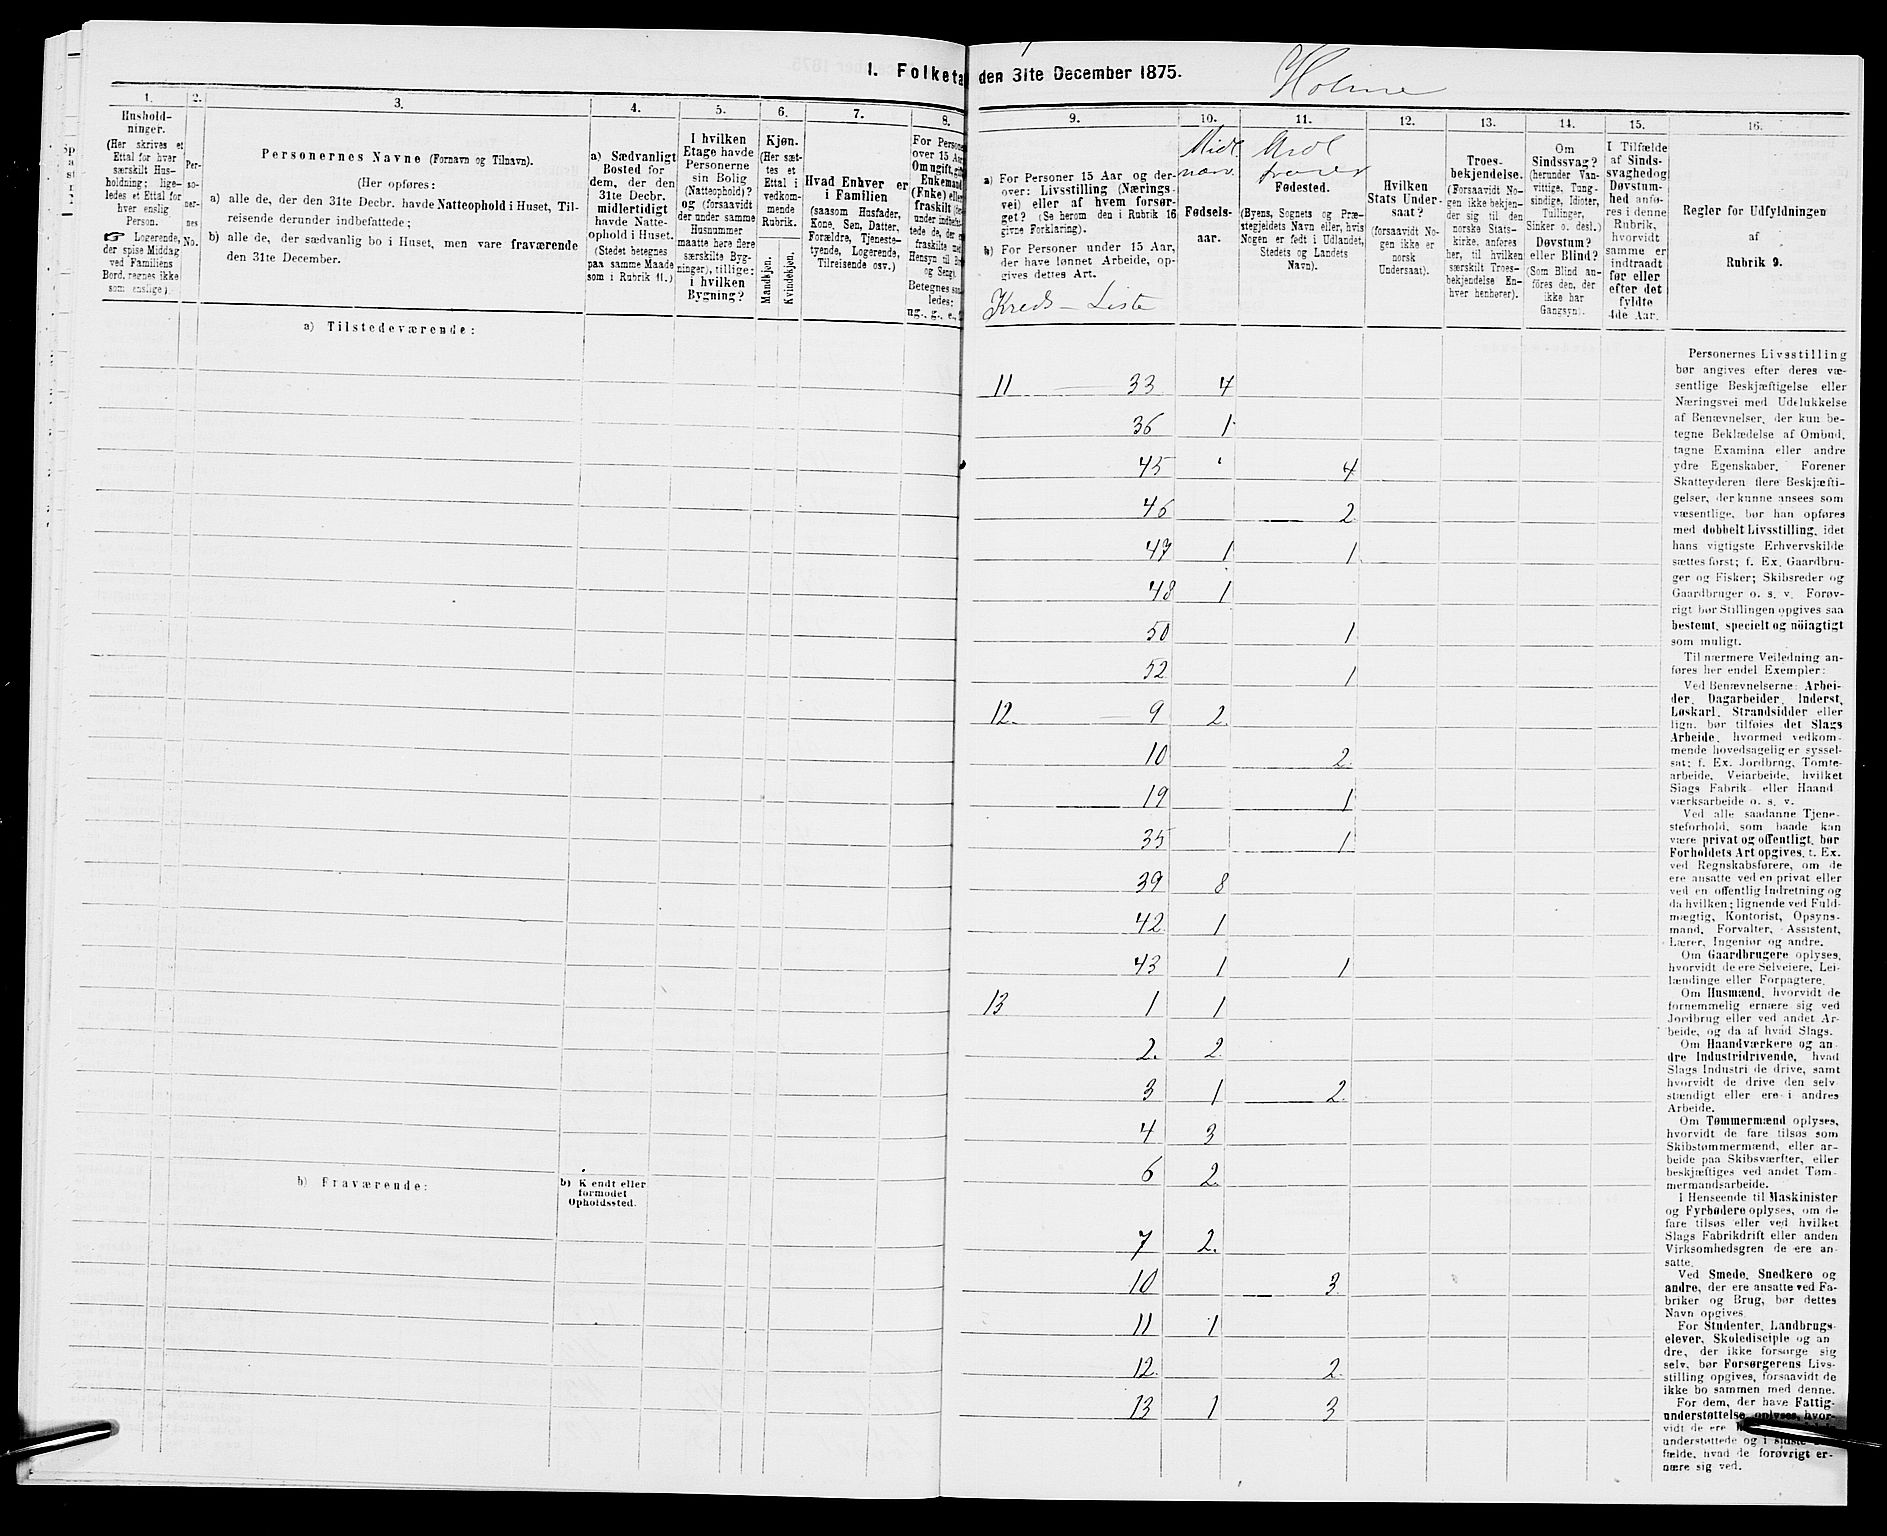 I. Folketæ
den 31te December 1875.
Holme
1.
2.
3.
4.
5.
6.
7.
8.
Hushold-
ninger.
(Her skrives et
Ettal for hver
særskilt Hus-
holdning; lige-
ledes et Ettal for
hver enslig
Person.
☞ Logerende,
der spise Middag
ved Familiens
Bord, regnes ikke
som enslige).
Per-
so-
ner-
nes
No.
Personernes Navne (Fornavn og Tilnavn).
(Her opføres:
a) alle de, der den 31te Decbr. havde Natteophold i Huset, Til-
reisende derunder indbefattede;
b) alle de, der sædvanlig bo i Huset, men vare fraværende
den 31te December.
a) Sædvanligt
Bosted for
dem, der den
31te Decbr.
midlertidigt
havde Natte-
ophold i Huset.
(Stedet betegnes
paa samme Maade
som i Rubrik 11.)
I hvilken
Etage havde
Personerne
sin Bolig
(Natteophold)?
og (forsaavidt
der under samme
Husnummer
maatte høre flere
særskilte Byg-
ninger), tillige:
i hvilken
Bygning?
Kjøn.
(Her sæt-
tes et
Ettal i
vedkom-
mende
Rubrik.
Mandkjøn.
Kvindekjøn.
Hvad Enhver er
i Familien
(saasom Husfader,
Kone, Søn, Datter,
Forældre, Tjeneste-
tyende, Logerende,
Tilreisende osv.)
For Persone
over 15 Aar
Om ugift, gift
Enkemand
(Enke) eller
fraskilt
Betegnes saa-
ledes:
ug., g., e.,
a) Tilstedeværende:
b) Fraværende:
b) Kjendt eller
formodet
Opholdssted.
9.
10.
11.
12.
13.
14.
15.
16.
a) For Personer 15 Aar og der-
over: Livsstilling (Nærings-
vei) eller af hvem forsør-
get? (Se herom den i Rubrik 16
givne Forklaring).
b) For Personer under 15 Aar,
der have lønnet Arbeide, op-
gives dettes Art.
Kreds – Liste
Midl.
nærv.
Fødsels-
aar.
Midl.
fravær
Fødested.
(Byens, Sognets og Præ-
stegjeldets Navn eller, hvis
Nogen er født i Udlandet,
Stedets og Landets
Navn).
Hvilken
Stats Under-
saat?
(forsaavidt No-
gen ikke er
norsk
Undersaat).
Troes-
bekjendelse.
(Forsaavidt No-
gen ikke bekjen-
der sig til den
norske Stats-
kirke, anføres
her, til hvilken
særskilt Troes-
bekjendelse En-
hver henhører).
Om
Sindssvag?
(herunder Van-
vittige, Tung-
sindige, Idioter,
Tullinger,
Sinker o. desl.)
Døvstum?
eller Blind?
(Som Blind an-
føres den, der
ikke har
Gangsyn).
I Tilfælde
af Sinds-
svaghed og
Døvstum-
hed anfø-
res i denne
Rubrik,
hvorvidt
samme er
indtraadt
før eller
efter det
fyldte
4de Aar.
Regler for Udfyldningen
af
Rubrik 9.
11 — 33 4
36 1
45 " 4
46 2
47 1 1
48 1
50 1
52 1
12. — 9 2.
10 2.
19 1
35 1
39 8
42 1
43 1 1
13 1 1
2. 2
3 1 2.
4 3
6 2.
7 2.
10 3
11 1
12. 2.
13 1 3
Personernes Livsstilling
bør angives efter deres væ-
sentlige Beskjæftigelse eller
Næringsvei med Udelukkelse
af Benævnelser, der kun be-
tegne Beklædelse af Ombud,
tagne Examina eller andre
ydre Egenskaber. Forener
Skatteyderen flere Beskjæfti-
gelser, der kunne ansees som
væsentlige, bør han opføres
med dobbelt Livsstilling, idet
hans vigtigste Erhvervskilde
sættes først; f. Ex. Gaardbru-
ger og Fisker; Skibsreder og
Gaardbruger o. s. v. Forøv-
rigt bør Stillingen opgives saa
bestemt, specielt og nöiagtigt
som muligt.
Til nærmere Veiledning an-
føres her endel Exempler:
Ved Benævnelserne: Arbei-
der, Dagarbeider, Inderst,
Løskarl, Strandsidder eller
lign. bør tilføies det Slags
Arbeide, hvormed vedkom-
mende hovedsagelig er syssel-
sat; f. Ex. Jordbrug, Tomte-
arbeide, Veiarbeide, hvilket
Slags Fabrik- eller Haand-
værksarbeide o. s. v.
Ved alle saadanne Tjene-
steforhold, som baade kan
være privat og offentligt, bør
Forholdets Art opgives, t. Ex.
ved Regnskabsførere, om de
ere ansatte ved en privat eller
ved en offentlig Indretning og
da hvilken; lignende ved Fuld-
mægtig, Kontorist, Opsyns-
mand, Forvalter, Assistent,
Lærer, Ingeniør og andre.
Om Gaardbrugere oplyses,
hvorvidt de ere Selveiere, Lei-
lændinge eller Forpagtere.
Om Husmænd, hvorvidt de
fornemmelig ernære sig ved
Jordbrug eller ved andet Ar-
beide, og da af hvad Slags.
Om Haandværkere og an-
dre Industridrivende, hvad
Slags Industri de drive, samt
hvorvidt de drive den selv-
stændigt eller ere i andres
Arbeide.
Om Tømmermænd oplyses,
hvorvidt de fare tilsøs som
Skibstømmermænd, eller ar-
beide paa Skibsværfter, eller
beskjæftiges ved andet Tøm-
mermandsarbeide.
I Henseende til Maskinister
og Fyrbødere oplyses, om de
fare tilsøs eller ved hvilket
Slags Fabrikdrift eller anden
Virksomhedsgren de ere an-
satte.
Ved Smede, Snedkere og
andre, der ere ansatte ved Fa-
briker og Brug, bør dettes
Navn opgives.
For Studenter, Landbrugs-
elever, Skoledisciple og an-
dre, der ikke forsørge sig
selv, bør Forsørgerens Livs-
stilling opgives, forsaavidt de
ikke bo sammen med denne.
For dem, der have Fattig-
understøttelse, oplyses, hvor-
vidt de ere
understøttede og i sidste
fælde, hvad de forøvrigt er-
nære sig ved.